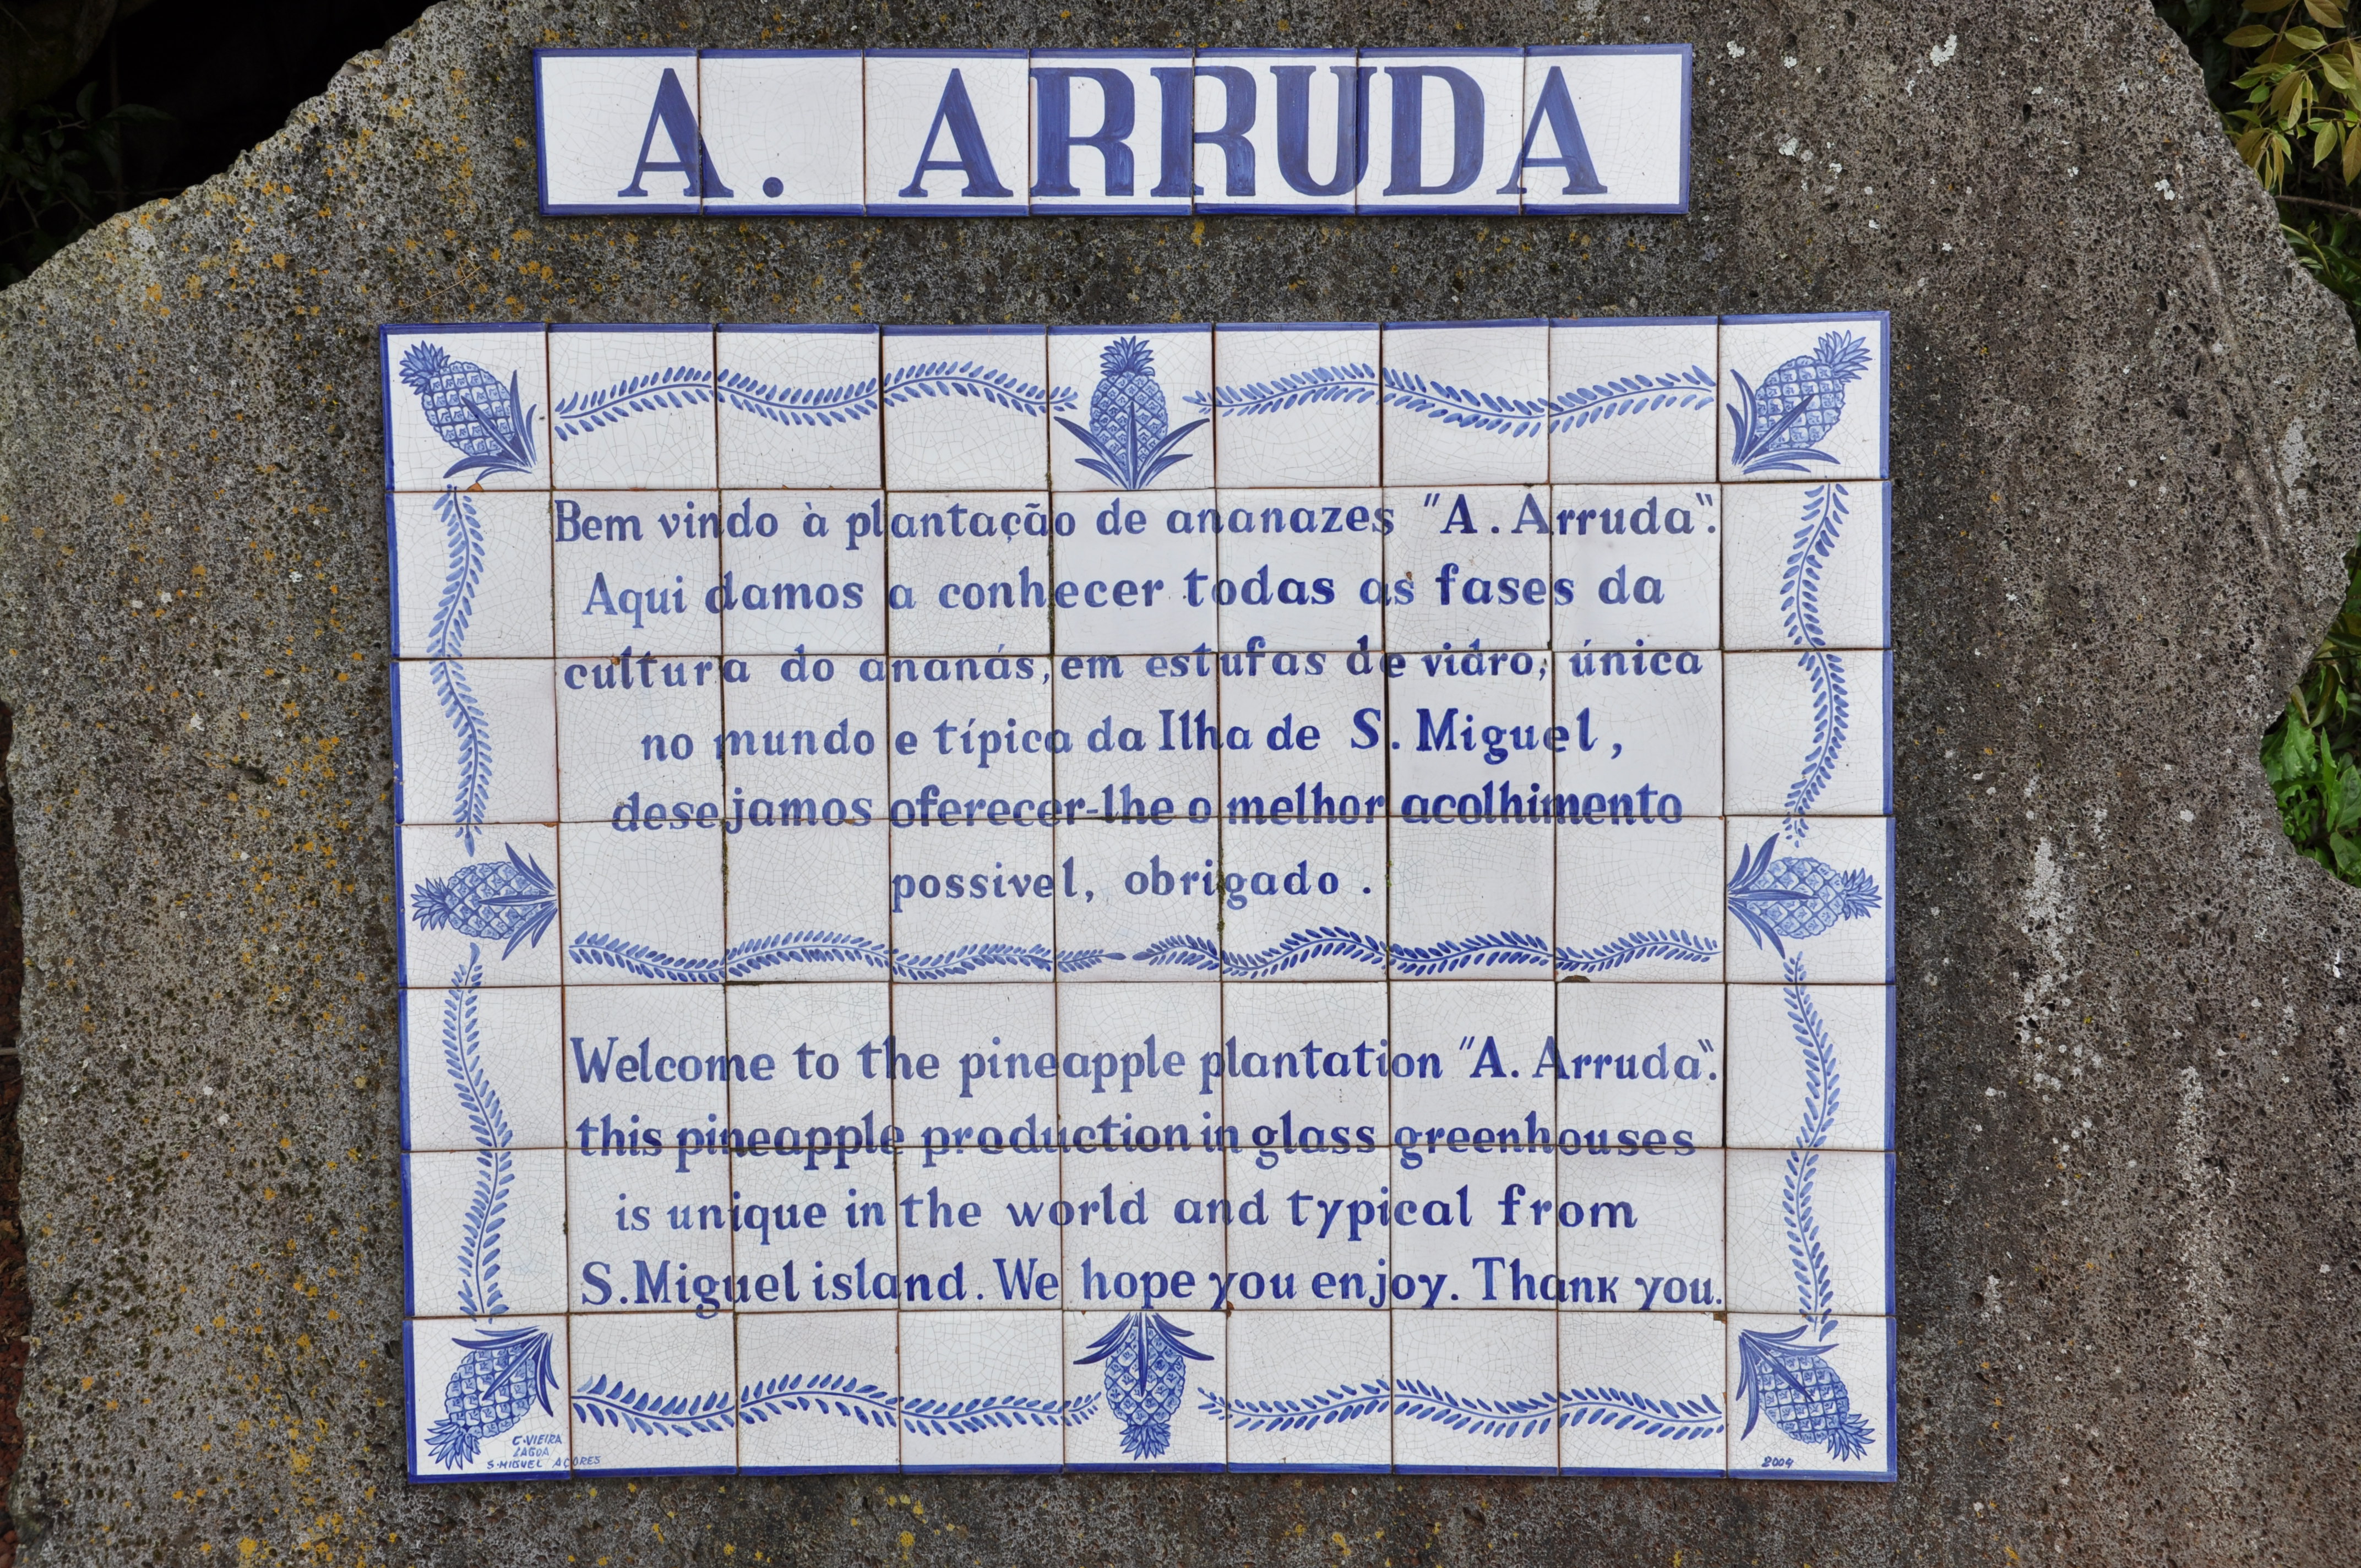 A. ARRUDA
Bem vindo à plantação de ananazes "A. Arruda".
Aqui damos a conhecer todas as fases da
cultura do ananás, em estufas de vidro, única
no mundo e típica da Ilha de S. Miguel,
desejamos oferecer-lhe o melhor acolhimento
possivel, obrigado.
Welcome to the pineapple plantation "A. Arruda".
this pineapple production in glass greenhouses
is unique in the world and typical from
S. Miguel island. We hope you enjoy. Thank you.
C. VIEIRA
LAGOA
S. MIGUEL AÇORES
2004